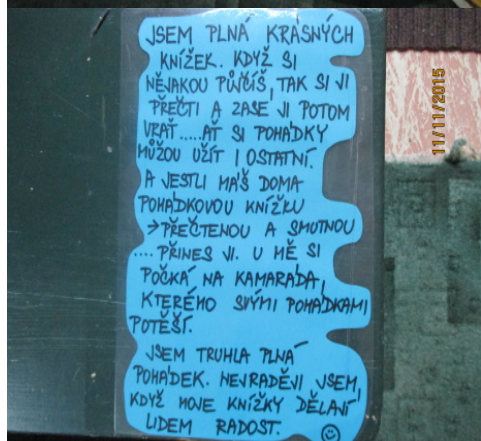 JSEM PLNÁ KRÁSNÝCH
KNÍŽEK. KDYŽ SI
NĚJAKOU PŮJČÍŠ, TAK SI JI
PŘEČTI A ZASE JI POTOM
VRAŤ.....AŤ SI POHÁDKY
MŮŽOU UŽÍT I OSTATNÍ.
A JESTLI MÁŠ DOMA
POHÁDKOVOU KNÍŽKU
→PŘEČTENOU A SMUTNOU
....PŘINES JI. U MĚ SI
POČKÁ NA KAMARÁDA,
KTERÉHO SVÝMI POHÁDKAMI
POTĚŠÍ.
JSEM TRUHLA PLNÁ
POHÁDEK. NEJRADĚJI JSEM,
KDYŽ MOJE KNÍŽKY DĚLAJÍ
LIDEM RADOST. ☺
11/11/2015